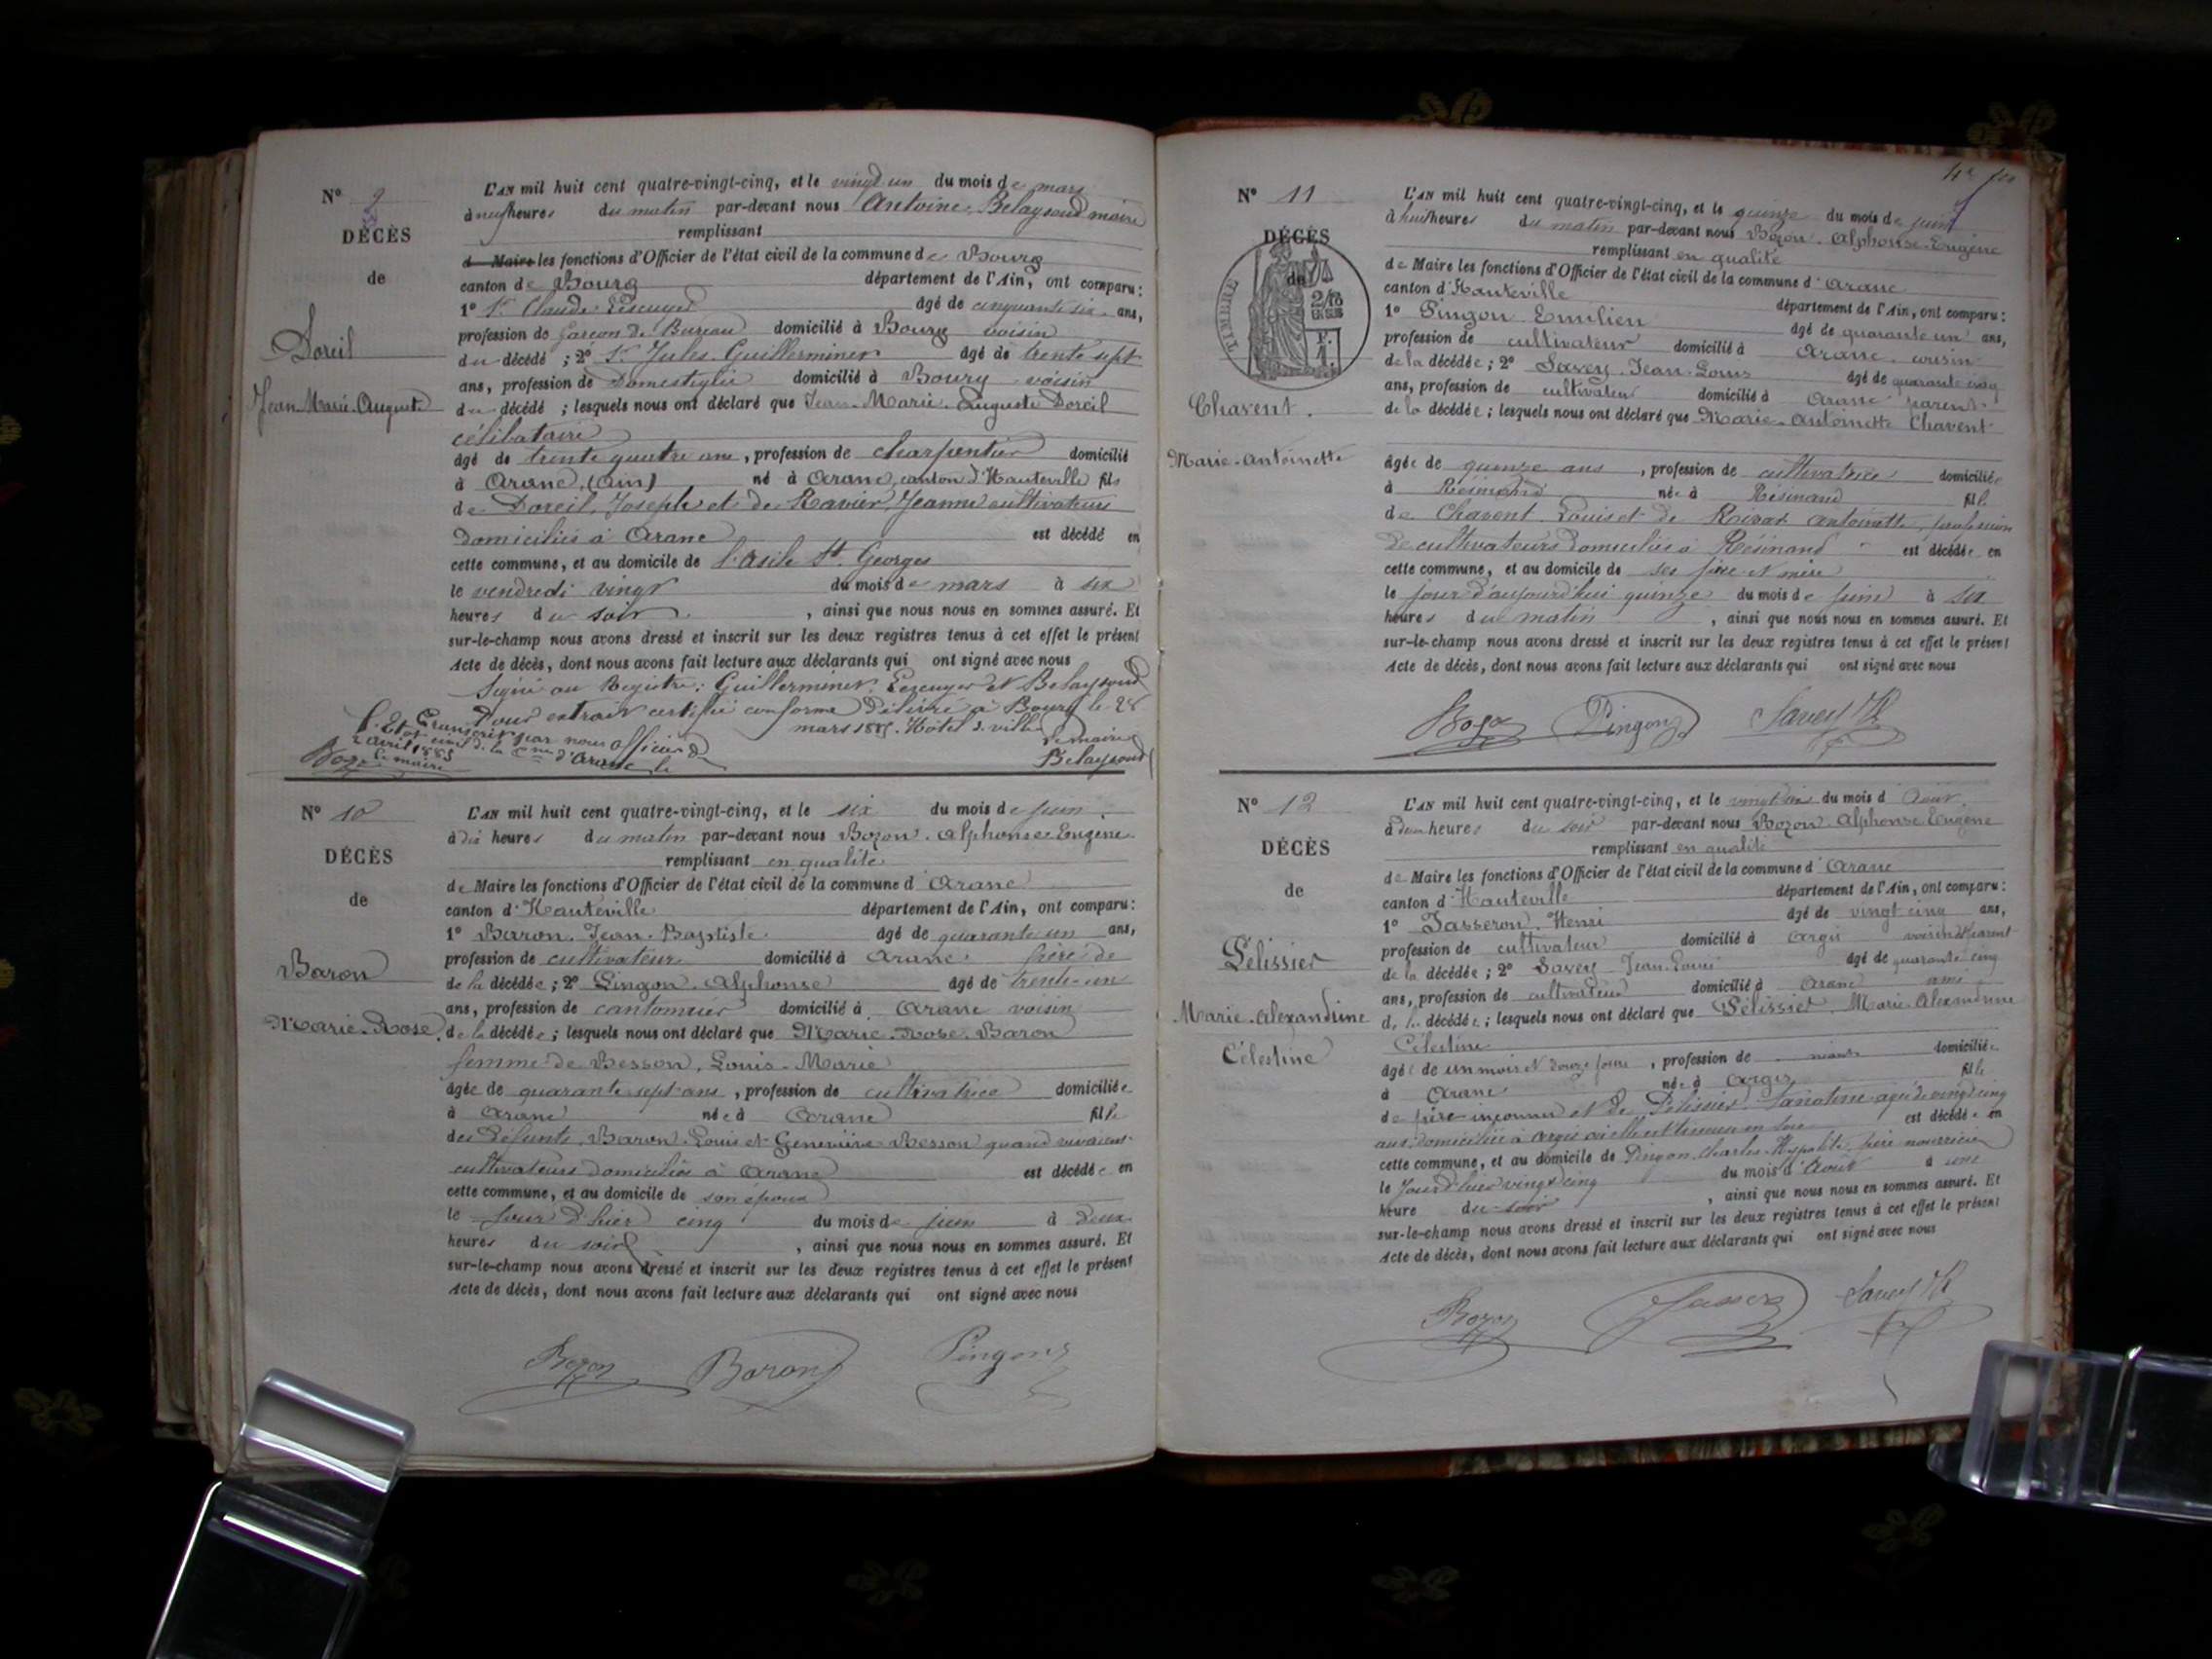 N° 9
DÉCÈS
de
Doreil
Jean-Marie-Auguste
L'AN mil huit cent quatre-vingt-cinq, et le vingt un du mois de mars
à neuf heures du matin par-devant nous Antoine Belaysoud maire
remplissant
d Maire les fonctions d'Officier de l'état civil de la commune de Bourg
canton de Bourg département de l'Ain, ont comparu:
1° Sr Claude Lescuyer âgé de cinquante six ans,
profession de Garçon de Bureau domicilié à Bourg voisin
du décédé ; 2° Sr Jules Guillerminet âgé de trente sept
ans, profession de Domestique domicilié à Bourg voisin
du décédé ; lesquels nous ont déclaré que Jean-Marie-Auguste Doreil
célibataire
âgé de trente quatre ans, profession de charpentier domicilié
à Aranc, (Ain) né à Aranc, canton d'Hauteville fils
de Doreil, Joseph et de Ravier, Jeanne cultivateurs
domiciliés à Aranc est décédé en
cette commune, et au domicile de l'asile St Georges
le vendredi vingt du mois de mars à six
heures du soir, ainsi que nous nous en sommes assuré. Et
sur-le-champ nous avons dressé et inscrit sur les deux registres tenus à cet effet le présent
Acte de décès, dont nous avons fait lecture aux déclarants qui ont signé avec nous
Signé au Registre: Guillerminet, Lescuyer et Belaysoud
Pour extrait certifié conforme Délivré à Bourg le 28
mars 1885. Hôtel de ville
Le maire
Belaysoud
Transcrit par nous officier de
l'Etat civil de la Cne d'Aranc le
2 avril 1885
Le maire
Bozon
N° 10
DÉCÈS
de
Baron
Marie-Rose
L'AN mil huit cent quatre-vingt-cinq, et le six du mois de juin
à dix heures du matin par-devant nous Bozon Alphonse Eugène
remplissant en qualité
de Maire les fonctions d'Officier de l'état civil de la commune d'Aranc
canton d'Hauteville département de l'Ain, ont comparu:
1° Baron Jean-Baptiste âgé de quarante un ans,
profession de cultivateur domicilié à Aranc frère de
de la décédée; 2° Pingon Alphonse âgé de trente-un
ans, profession de cantonnier domicilié à Aranc voisin
de la décédée; lesquels nous ont déclaré que Marie-Rose Baron
femme de Besson, Louis-Marie
âgée de quarante sept ans, profession de cultivatrice domiciliée
à Aranc née à Aranc fille
des défunts Baron Louis et Geneviève Besson quand vivaient
cultivateurs domiciliés à Aranc est décédée en
cette commune, et au domicile de son époux
le jour d'hier cinq du mois de juin à deux
heures du soir, ainsi que nous nous en sommes assuré. Et
sur-le-champ nous avons dressé et inscrit sur les deux registres tenus à cet effet le présent
Acte de décès, dont nous avons fait lecture aux déclarants qui ont signé avec nous
Bozon Baron Pingon
N° 11
DÉCÈS
de
TIMBRE
Chavent
Marie-Antoinette
L'AN mil huit cent quatre-vingt-cinq, et le quinze du mois de juin
à huit heures du matin par-devant nous Bozon Alphonse-Eugène
remplissant en qualité
de Maire les fonctions d'Officier de l'état civil de la commune d'Aranc
canton d'Hauteville département de l'Ain, ont comparu:
1° Pingon Emilien âgé de quarante un ans,
profession de cultivateur domicilié à Aranc cousin
de la décédée; 2° Savey Jean-Louis âgé de quarante cinq
ans, profession de cultivateur domicilié à Aranc parent
de la décédée; lesquels nous ont déclaré que Marie-Antoinette Chavent
âgée de quinze ans, profession de cultivatrice domiciliée
à Résinand née à Résinand fille
de Chavent Louis et de Antoinette, profession
de cultivateurs domiciliés à Résinand est décédée en
cette commune, et au domicile de ses père et mère
le jour d'aujourd'hui quinze du mois de juin à six
heures du matin, ainsi que nous nous en sommes assuré. Et
sur-le-champ nous avons dressé et inscrit sur les deux registres tenus à cet effet le présent
Acte de décès, dont nous avons fait lecture aux déclarants qui ont signé avec nous
Bozon Pingon Savey
N° 12
DÉCÈS
de
Pélissier
Marie-Alexandrine
Célestine
L'AN mil huit cent quatre-vingt-cinq, et le du mois d'Août
à deux heures du soir par-devant nous Bozon Alphonse Eugène
remplissant en qualité
de Maire les fonctions d'Officier de l'état civil de la commune d'Aranc
canton d'Hauteville département de l'Ain, ont comparu:
1° Jasseron Henri âgé de vingt cinq ans,
profession de cultivateur domicilié à Argis voisin et parent
de la décédée; 2° Savey Jean-Louis âgé de quarante cinq
ans, profession de cultivateur domicilié à Aranc ami
de la décédée; lesquels nous ont déclaré que Pélissier Marie-Alexandrine
Célestine
âgée de un mois et douze jours, profession de domiciliée
à Aranc née à Argis fille
de père inconnu et de Pélissier âgée de vingt cinq
ans, domiciliée à Argis où elle est tisseuse en soie est décédée en
cette commune, et au domicile de Pingon Charles Hypolite, père nourricier
le jour d'hier vingt cinq du mois d'Août à une
heure du soir, ainsi que nous nous en sommes assuré. Et
sur-le-champ nous avons dressé et inscrit sur les deux registres tenus à cet effet le présent
Acte de décès, dont nous avons fait lecture aux déclarants qui ont signé avec nous
Bozon Savey